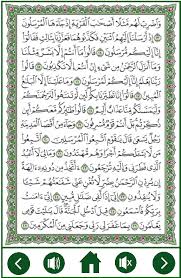 وَٱضْرِبْ لَهُم مَّثَلًا أَصْحَٰبَ ٱلْقَرْيَةِ إِذْ جَآءَهَا ٱلْمُرْسَلُونَ
إِذْ أَرْسَلْنَآ إِلَيْهِمُ ٱثْنَيْنِ فَكَذَّبُوهُمَا فَعَزَّزْنَا بِثَالِثٍ فَقَالُوٓا۟
إِنَّآ إِلَيْكُم مُّرْسَلُونَ قَالُوا۟ مَآ أَنتُمْ إِلَّا بَشَرٌ مِّثْلُنَا
وَمَآ أَنزَلَ ٱلرَّحْمَٰنُ مِن شَىْءٍ إِنْ أَنتُمْ إِلَّا تَكْذِبُونَ قَالُوا۟
رَبُّنَا يَعْلَمُ إِنَّآ إِلَيْكُمْ لَمُرْسَلُونَ وَمَا عَلَيْنَآ إِلَّا ٱلْبَلَٰغُ
ٱلْمُبِينُ قَالُوٓا۟ إِنَّا تَطَيَّرْنَا بِكُمْ لَئِن لَّمْ تَنتَهُوا۟ لَنَرْجُمَنَّكُمْ
وَلَيَمَسَّنَّكُم مِّنَّا عَذَابٌ أَلِيمٌ قَالُوا۟ طَٰٓئِرُكُم مَّعَكُمْ أَئِن
ذُكِّرْتُم بَلْ أَنتُمْ قَوْمٌ مُّسْرِفُونَ وَجَآءَ مِنْ أَقْصَا ٱلْمَدِينَةِ
رَجُلٌ يَسْعَىٰ قَالَ يَٰقَوْمِ ٱتَّبِعُوا۟ ٱلْمُرْسَلِينَ ٱتَّبِعُوا۟
مَن لَّا يَسْـَٔلُكُمْ أَجْرًا وَهُم مُّهْتَدُونَ وَمَا لِىَ لَآ أَعْبُدُ
ٱلَّذِى فَطَرَنِى وَإِلَيْهِ تُرْجَعُونَ ءَأَتَّخِذُ مِن دُونِهِۦٓ ءَالِهَةً
إِن يُرِدْنِ ٱلرَّحْمَٰنُ بِضُرٍّ لَّا تُغْنِ عَنِّى شَفَٰعَتُهُمْ شَيْـًٔا
وَلَا يُنقِذُونِ إِنِّىٓ إِذًا لَّفِى ضَلَٰلٍ مُّبِينٍ إِنِّىٓ ءَامَنتُ
بِرَبِّكُمْ فَٱسْمَعُونِ قِيلَ ٱدْخُلِ ٱلْجَنَّةَ قَالَ يَٰلَيْتَ قَوْمِى
يَعْلَمُونَ بِمَا غَفَرَ لِى رَبِّى وَجَعَلَنِى مِنَ ٱلْمُكْرَمِينَ